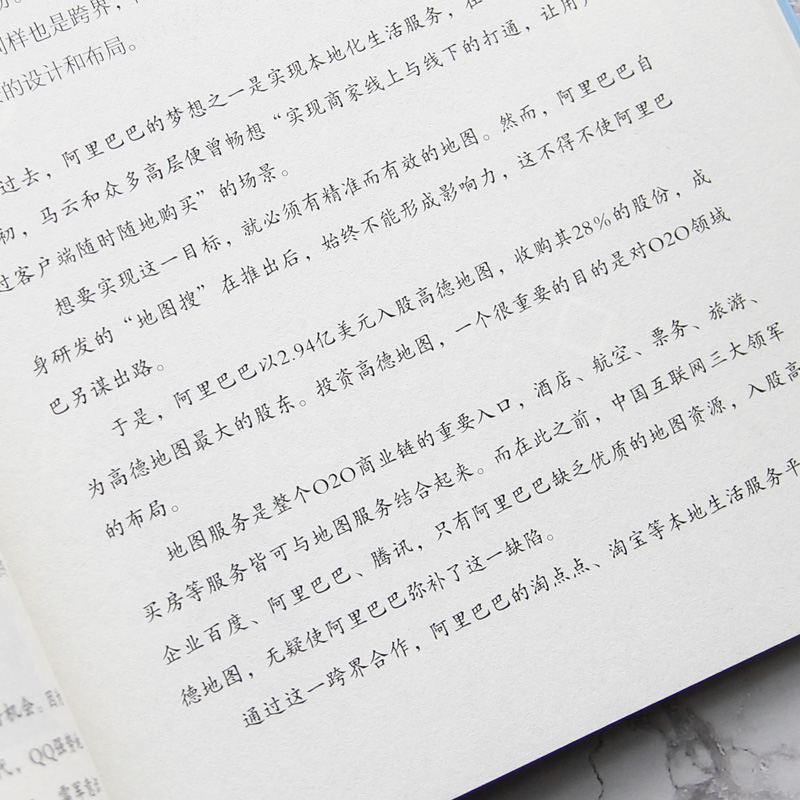 同样也是跨界,
的设计和布局。
过去,阿里巴巴的梦想之一是实现本地化生活服务,在
初,马云和众多高层便曾畅想“实现商家线上与线下的打通,让用户
过客户端随时随地购买”的场景。
想要实现这一目标,就必须有精准而有效的地图。然而,阿里巴巴自
身研发的“地图搜”在推出后,始终不能形成影响力,这不得不使阿里巴
巴另谋出路。
于是,阿里巴巴以2.94亿美元入股高德地图,收购其28%的股份,成
为高德地图最大的股东。投资高德地图,一个很重要的目的是对O2O领域
的布局。
地图服务是整个O2O商业链的重要入口,酒店、航空、票务、旅游、
买房等服务皆可与地图服务结合起来。而在此之前,中国互联网三大领军
企业百度、阿里巴巴、腾讯,只有阿里巴巴缺乏优质的地图资源,入股高
德地图,无疑使阿里巴巴弥补了这一缺陷。
通过这一跨界合作,阿里巴巴的淘点点、淘宝等本地生活服务平
机会。
代,QQ